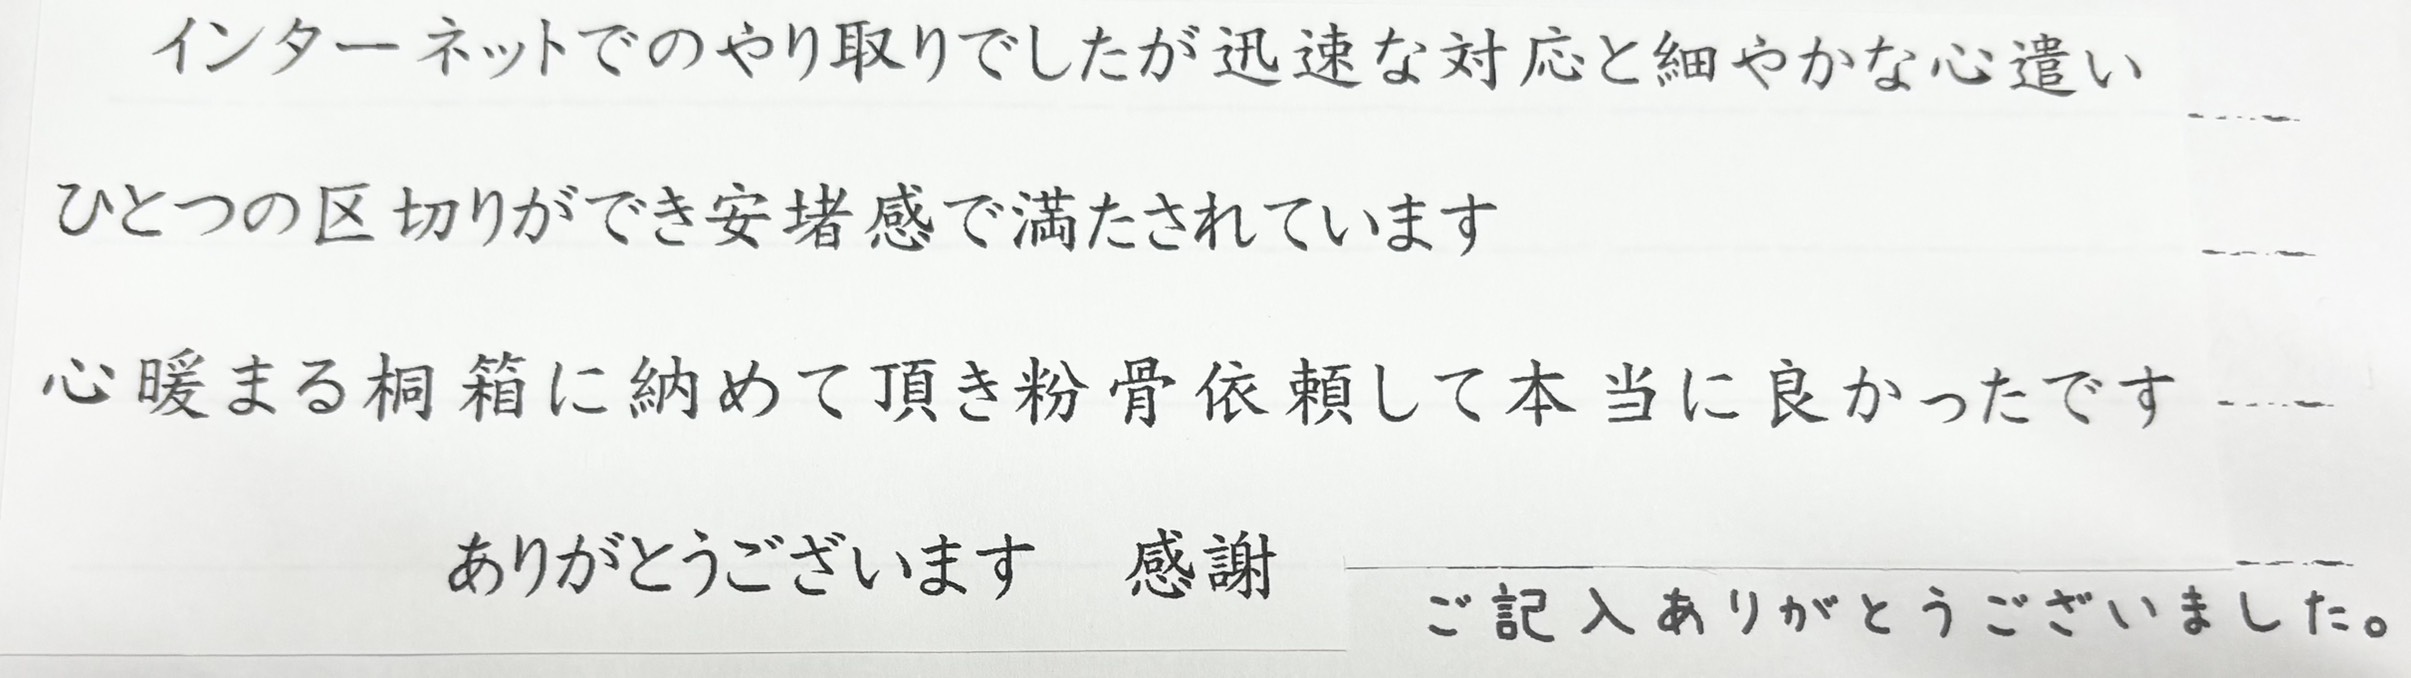 インターネットでのやり取りでしたが迅速な対応と細やかな心遣い
ひとつの区切りができ安堵感で満たされています
心暖まる桐箱に納めて頂き粉骨依頼して本当に良かったです
ありがとうございます　感謝
ご記入ありがとうございました。